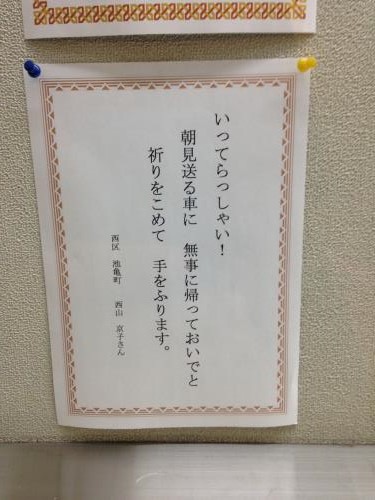 いってらっしゃい！
朝見送る車に　無事に帰っておいでと
祈りをこめて　手をふります。
西区　池亀町　西山　京子さん